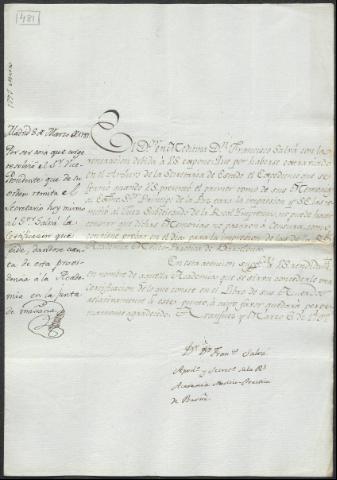 481
Madrid 8 de Marzo de 1797
Por ser cosa que urge
resolvió el Sr. Vice-
Presidente que de su
orden remita el
Secretario hoy mismo
al Sr. Salvá la
Certificacion que
pide, dandose cuen-
ta de esta provi-
dencia à la Acade-
mia en la junta
de mañana
El Dr. en Medicina Dn. Francisco Salvá con la
veneracion debida à VS expone: Que por haberse
en el Archivo de la Secretaría de Estado el Expediente que se
formó quando VS presentó el primer tomo de sus Memorias
al Exmo. Sr. Principe de la Paz para la impresion, y SE las re-
mitió al Juez Subdelegado de la Real Imprenta, no puede hacer
constar que dichas Memorias no pasaron à Censura, como
conviene probar en el dia para la impresion de las de la Rl.
Academia Medico-Practica de Barcelona.
En esta atencion suppca. à VS rendidamte.
en nombre de aquella Academia que se sirva concederle una
Certificacion de lo que conste en el Libro de sus Acuerdos
relativamente à este punto, à cuyo favor quedará per-
manentemente agradecido. Aranjuez y Marzo 6 de 1797
Dr. Dn. Franco. Salvá
Apodo. y Secreto. de la Rl.
Academia Medico-Practica
de Barna.